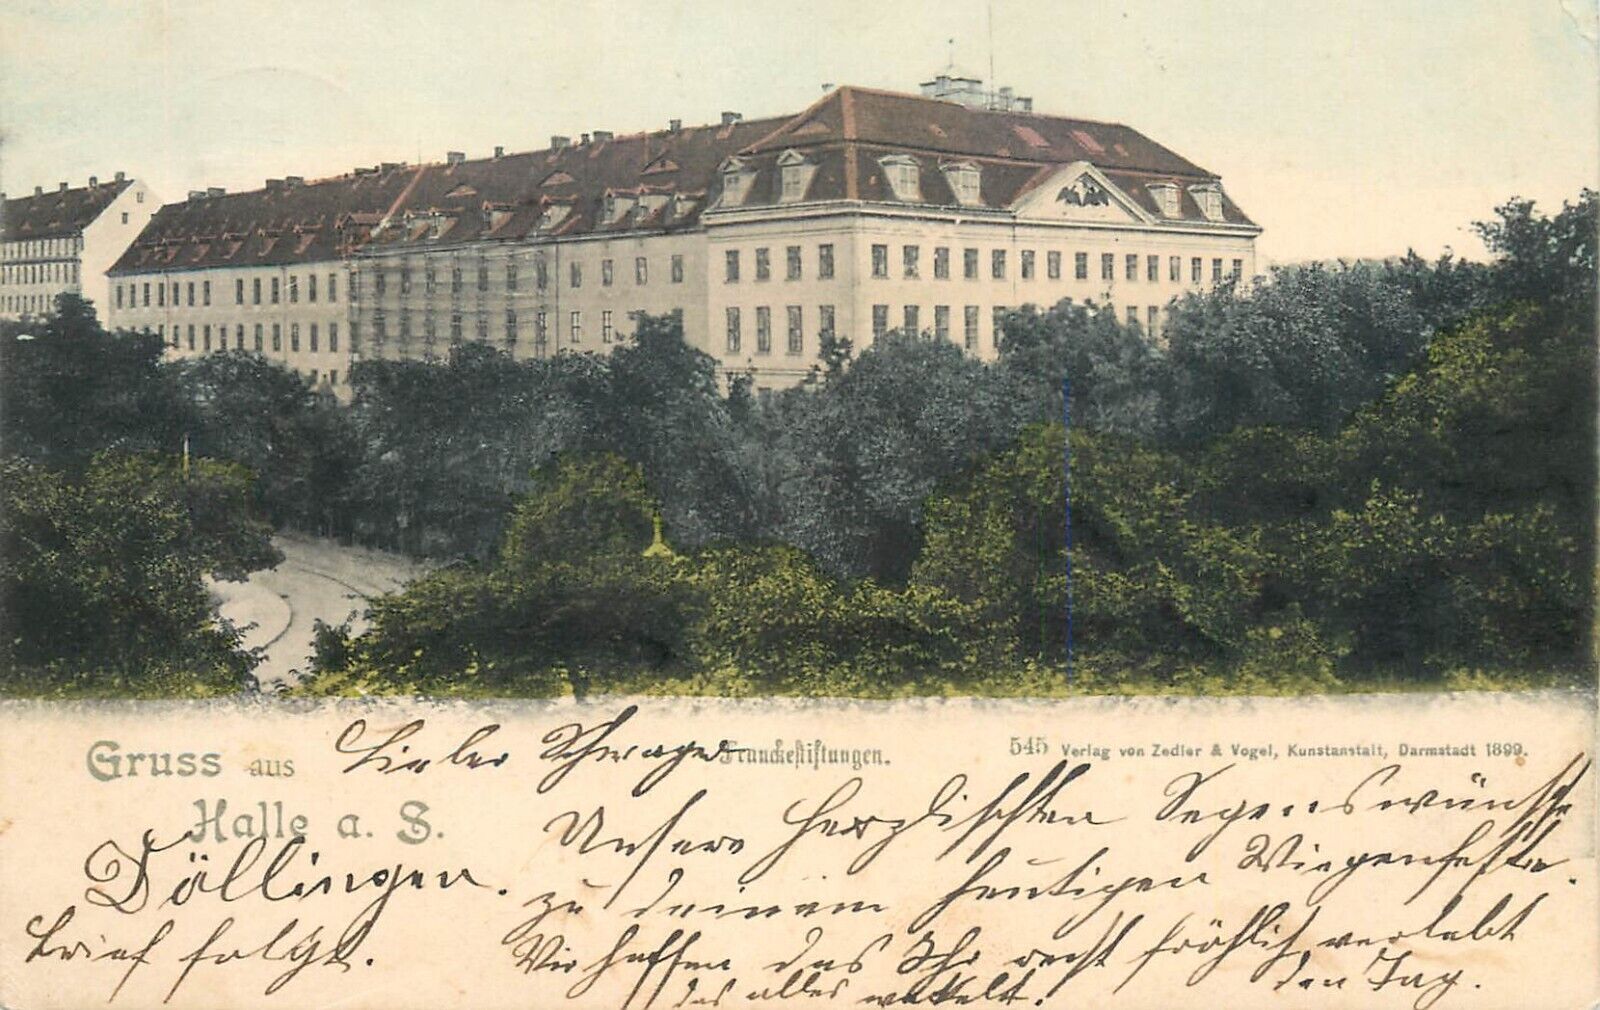 Gruss aus
Halle a. S.
Franckestiftungen.
545 Verlag von Zedler & Vogel, Kunstanstalt, Darmstadt 1899.
Lieber Schwager
Unsere herzlichsten Segenswünsche
zu deinem heutigen Wiegenfeste.
Wir hoffen das Ihr recht fröhlich verlebt
den Tag.
das alles wackelt.
Döllingen.
Brief folgt.